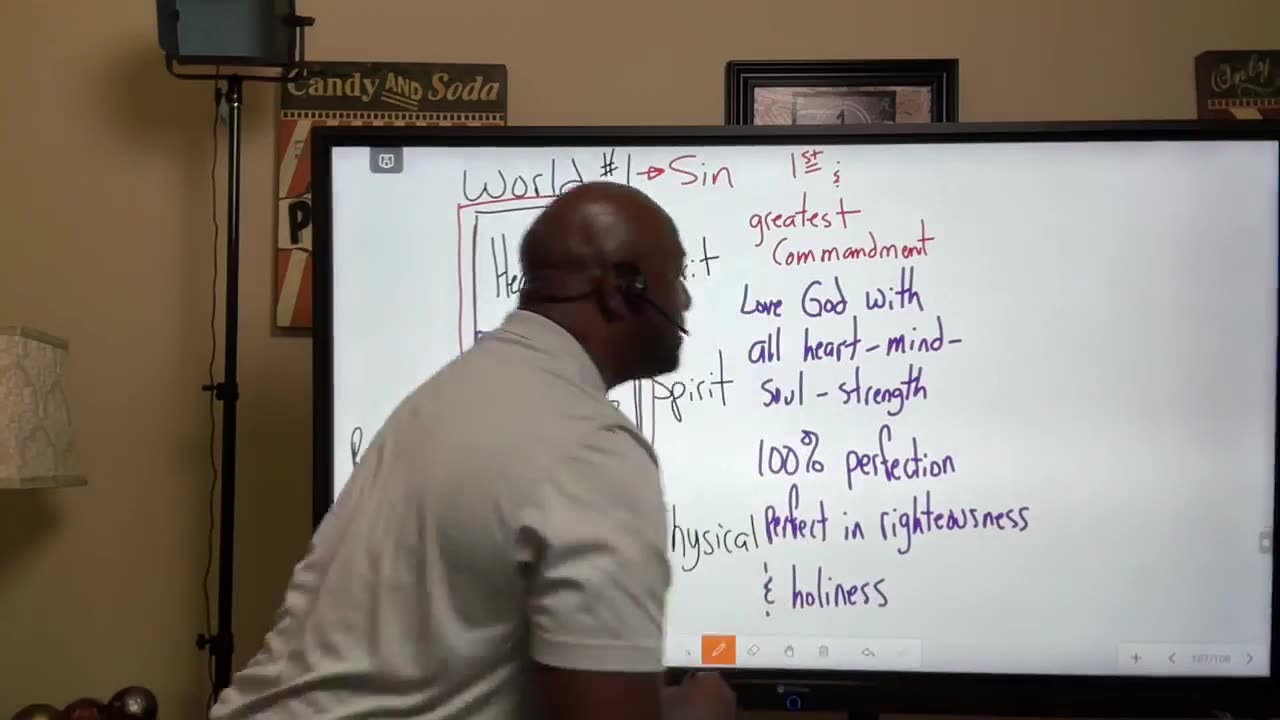 Candy AND Soda
Only
World #1 → Sin
1st &
greatest
Commandment
Love God with
all heart - mind -
soul - strength
Spirit
100% perfection
Perfect in righteousness
& holiness
187/188